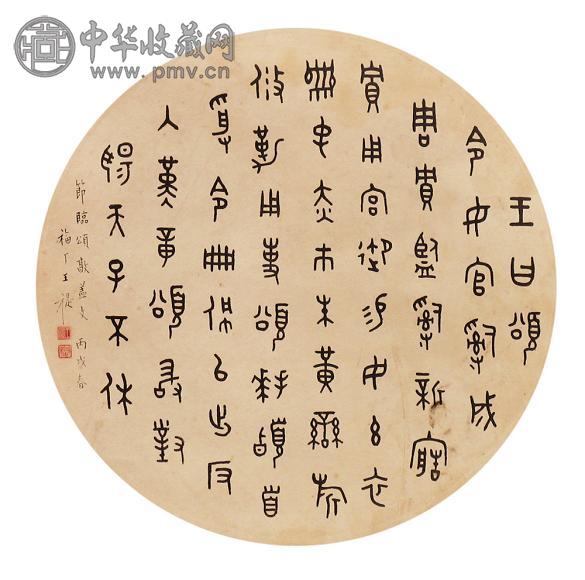 王曰頌
令女官𤔲成
周貯監𤔲新造
貯用宮御易女玄衣
黹屯赤巿朱黃鑾旂
攸勒用事頌拜𩒨首
受令冊佩以出反
入堇章頌敢對
揚天子不休
節臨頌敦蓋文 丙戌春
福厂王禔
中华收藏网
www.pmv.cn